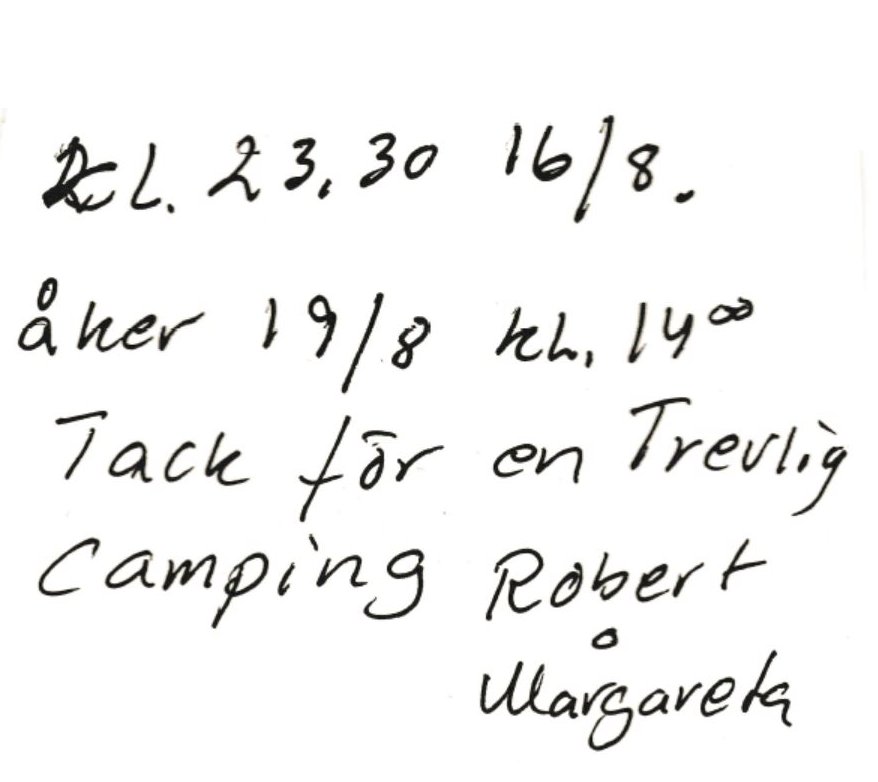 Kl. 23.30 16/8.
åker 19/8 kl. 14⁰⁰
Tack för en Trevlig
Camping Robert
o
Margareta